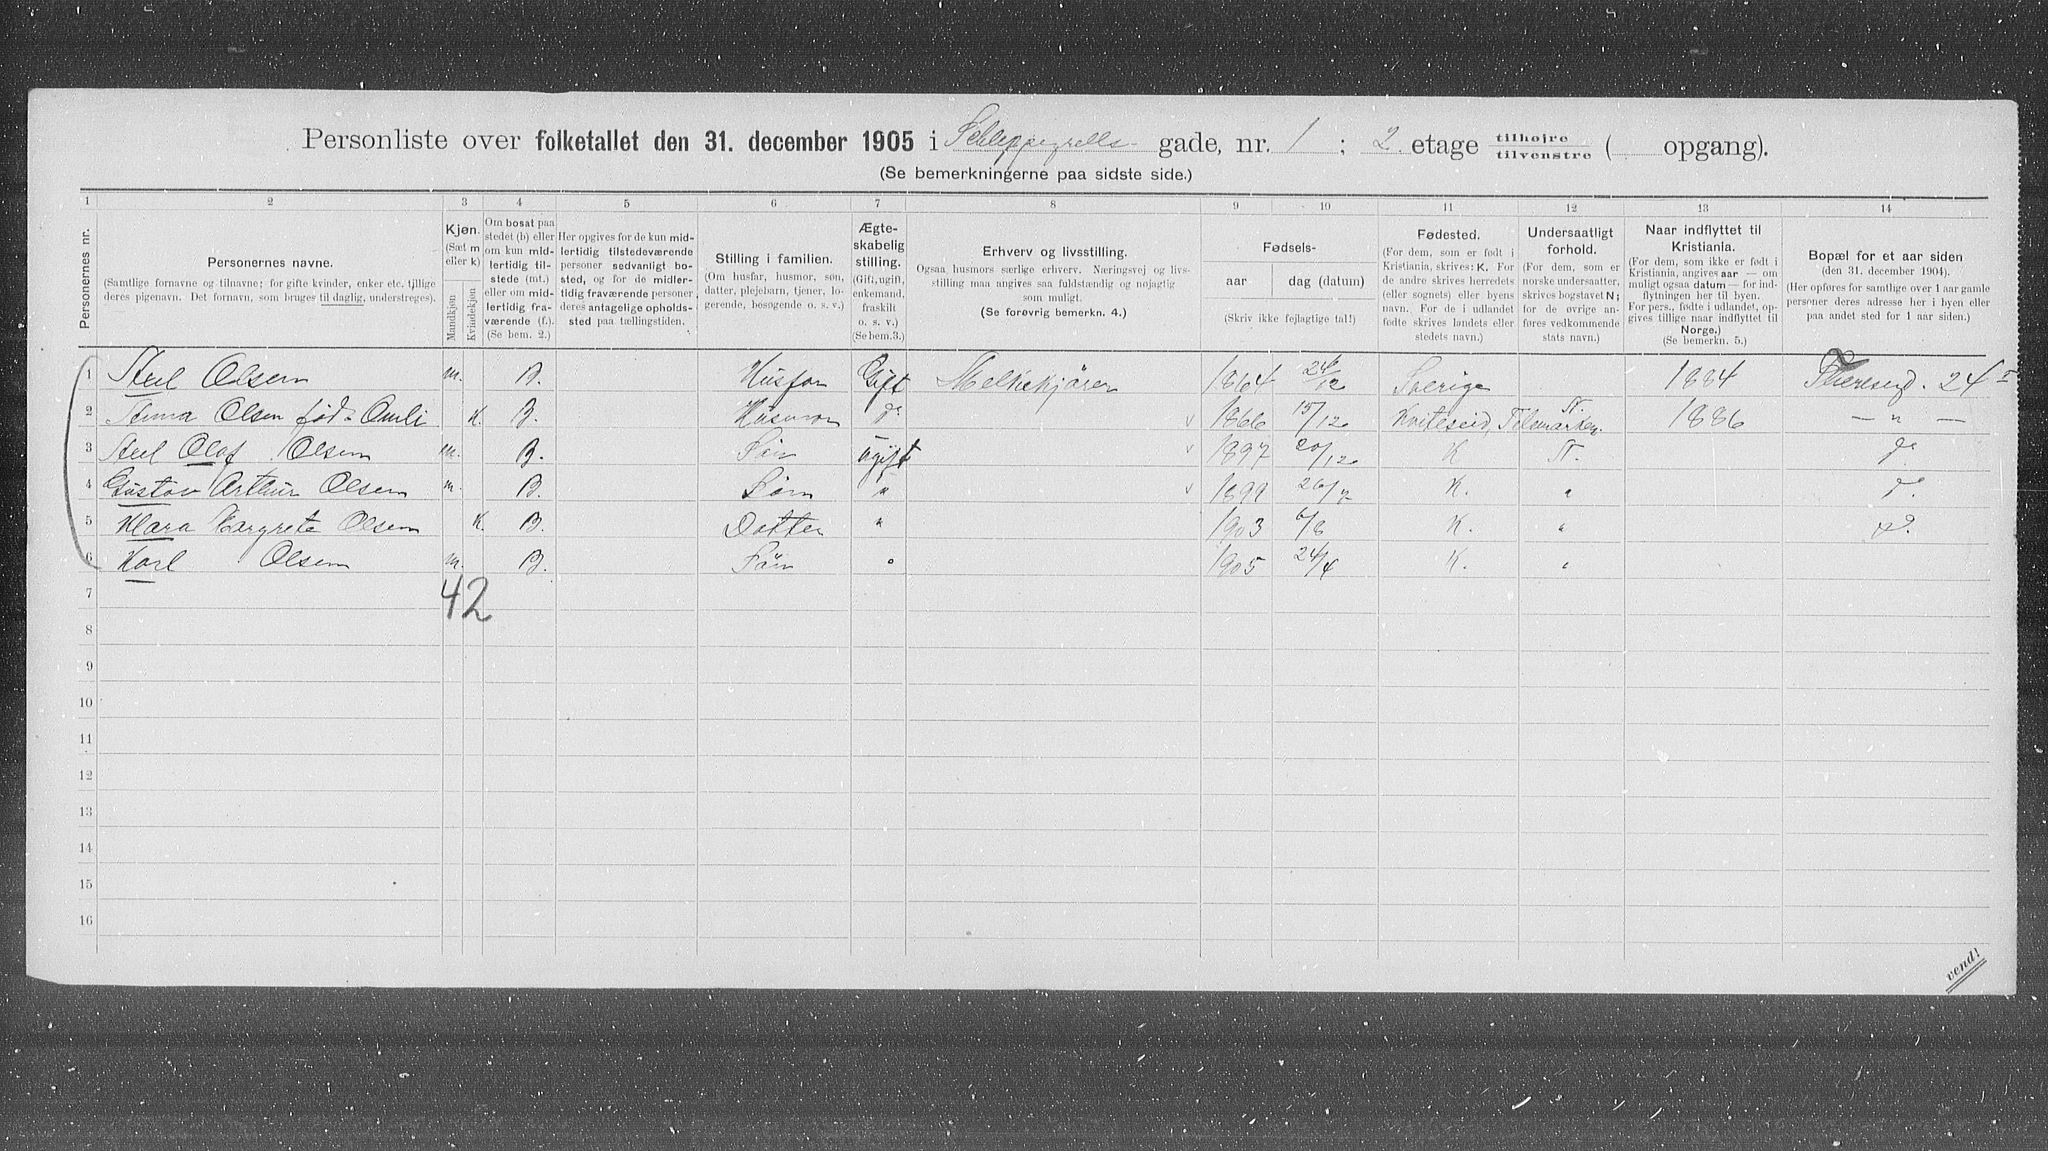 Personliste over folketallet den 31. december 1905 i Schleppegrells gade, nr. 1 ; 2 etage tilhøjre tilvenstre ( opgang).
(Se bemerkningerne paa sidste side.)
1 2 3 4 5 6 7 8 9 10 11 12 13 14
Personernes nr.
Personernes navne.
(Samtlige fornavne og tilnavne; for gifte kvinder, enker etc. tillige
deres pigenavn. Det fornavn, som bruges til daglig, understreges).
Kjøn.
(Sæt m
eller k)
Mandkjøn
Kvindekjøn
Om bosat paa
stedet (b) eller
om kun midlertidig
tilstede (mt.)
eller om midlertidig
fraværende (f.).
(Se bem. 2.)
Her opgives for de kun midlertidig
tilstedeværende
personer sedvanligt bosted,
og for de midlertidig
fraværende personer
deres antagelige opholdssted
paa tællingstiden.
Stilling i familien.
(Om husfar, husmor, søn,
datter, plejebarn, tjener, logerende,
besøgende o. s. v.)
Ægteskabelig
stilling.
(Gift, ugift,
enkemand,
fraskilt
o. s. v.)
(Se bem.3.)
Erhverv og livsstilling.
Ogsaa husmors særlige erhverv. Næringsvej og livsstilling
maa angives saa fuldstændig og nøjagtig
som muligt.
(Se forøvrig bemerkn. 4.)
Fødsels-
aar dag (datum)
(Skriv ikke fejlagtige tal!)
Fødested.
(For dem, som er født i
Kristiania, skrives: K. For
de andre skrives herredets
(eller sognets) eller byens
navn. For de i udlandet
fødte skrives landets eller
stedets navn.)
Undersaatligt
forhold.
(For dem, som er
norske undersaatter,
skrives bogstavet N;
for de øvrige anføres
vedkommende
stats navn.)
Naar indflyttet til
Kristiania.
(For dem, som ikke er født i
Kristiania, angives aar — om
muligt ogsaa datum — for indflytningen
her til byen.
For pers., fødte i udlandet, opgives
tillige naar indflyttet til
Norge.)
(Se bemerkn. 5.)
Bopæl for et aar siden
(den 31. december 1904).
(Her opføres for samtlige over 1 aar gamle
personer deres adresse her i byen eller
paa andet sted for 1 aar siden.)
1 Axel Olsen m. B. Husfar Gift Melkekjører 1864 24/12 Sverige 1884 24 I
2 Anna Olsen fød Omli K. B. Husmor do 1866 15/12 Kviteseid, Telemarken. N. 1886 — " —
3 Axel Olaf Olsen m. B. Søn ugift 1897 20/12 K N. do
4 Gustav Arthur Olsen m. B. Søn " 1899 K. " do
5 Klara Margrete Olsen K. B. Datter " 1903 6/8 K. " do
6 Karl Olsen m. B. Søn " 1905 24/4 K. "
7
42
8
9
10
11
12
13
14
15
16
vend!